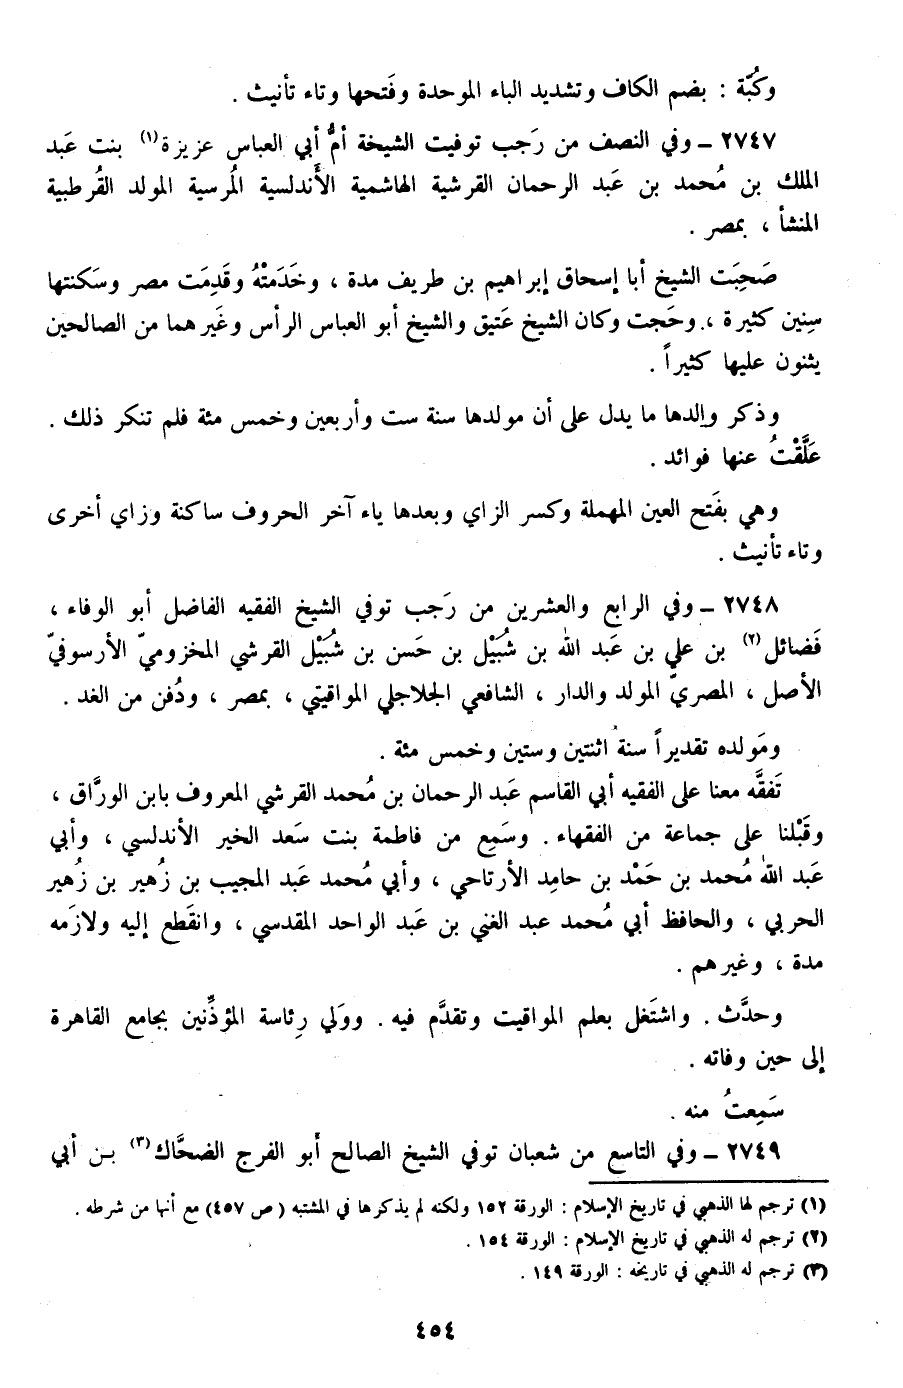 وكُبّة : بضم الكاف وتشديد الباء الموحدة وفَتحها وتاء تأنيث .
٢٧٤٧ ــ وفي النصف من رَجب توفيت الشيخة أمُّ أبي العباس عزيزة(١) بنت عَبد
الملك بن مُحمد بن عَبد الرحمان القرشية الهاشمية الأَندلسية المُرسية المولد القُرطبية
المنشأ ، بمصر .
صَحِبَت الشيخ أبا إسحاق إبراهيم بن طريف مدة ، وخَدَمتْهُ وقَدِمَت مصر وسَكنتها
سِنين كثيرة ، وحَجت وكان الشيخ عَتيق والشيخ أبو العباس الرأس وغَيرهما من الصالحين
يثنون عليها كثيراً .
وذكر والدها ما يدل على أن مولدها سنة ست وأربعين وخمس مئة فلم تنكر ذلك .
عَلَّقْتُ عنها فوائد .
وهي بفَتح العين المهملة وكسر الزاي وبعدها ياء آخر الحروف ساكنة وزاي أخرى
وتاء تأنيث .
٢٧٤٨ ــ وفي الرابع والعشرين من رَجب توفي الشيخ الفقيه الفاضل أبو الوفاء ،
فَضائل(٢) بن علي بن عَبد الله بن شُبَيْل بن حَسن بن شُبَيْل القرشي المخزوميّ الأرسوفيّ
الأصل ، المصريّ المولد والدار ، الشافعي الجلاجلي المواقيتي ، بمصر ، ودُفن من الغد .
ومَولده تقديراً سنة اثنتين وستين وخمس مئة .
تَفقَّه معنا على الفقيه أبي القاسم عَبد الرحمان بن مُحمد القرشي المعروف بابن الورَّاق ،
وقَبْلنا على جماعة من الفقهاء . وسَمِع من فاطمة بنت سَعد الخير الأندلسي ، وأبي
عَبد الله مُحمد بن حَمْد بن حامِد الأرتاحي ، وأبي مُحمد عَبد المجيب بن زُهير بن زُهير
الحربي ، والحافظ أبي مُحمد عبد الغني بن عَبد الواحد المقدسي ، وانقَطع إليه ولازَمه
مدة ، وغيرهم .
وحدَّث . واشتَغل بعلم المواقيت وتقدَّم فيه . ووَلي رِئاسة المؤذِّنين بجامع القاهرة
إلى حين وفاته .
سَمِعتُ منه .
٢٧٤٩ ــ وفي التاسع من شعبان توفي الشيخ الصالح أبو الفرج الضحَّاك(٣) بن أبي
(١) ترجم لها الذهبي في تاريخ الإسلام : الورقة ١٥٢ ولكنه لم يذكرها في المشتبه ( ص ٤٥٧) مع أنها من شرطه .
(٢) ترجم له الذهبي في تاريخ الإسلام : الورقة ١٥٤ .
(٣) ترجم له الذهبي في تاريخه : الورقة ١٤٩ .
٤٥٤